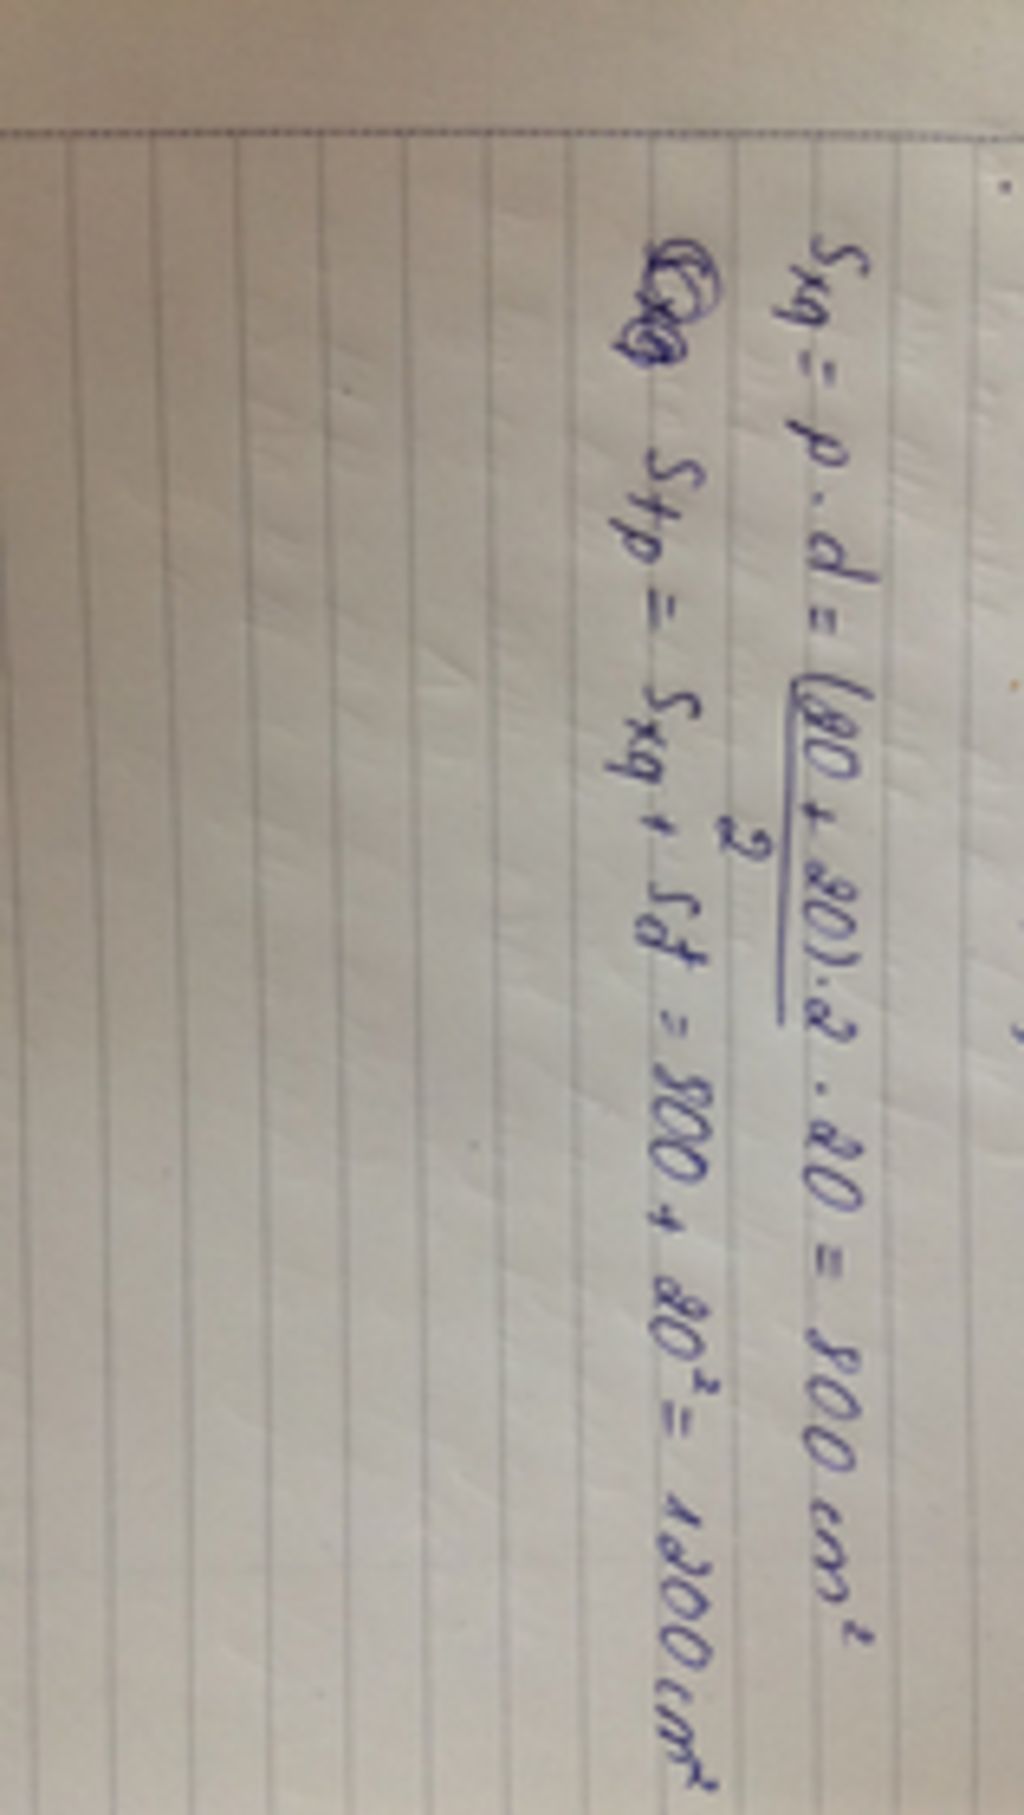 Sxq = p . d = (20 + 20) . 2 . 20 = 800 cm²
2
Stp = Sxq + Sđ = 800 + 20² = 1200 cm²